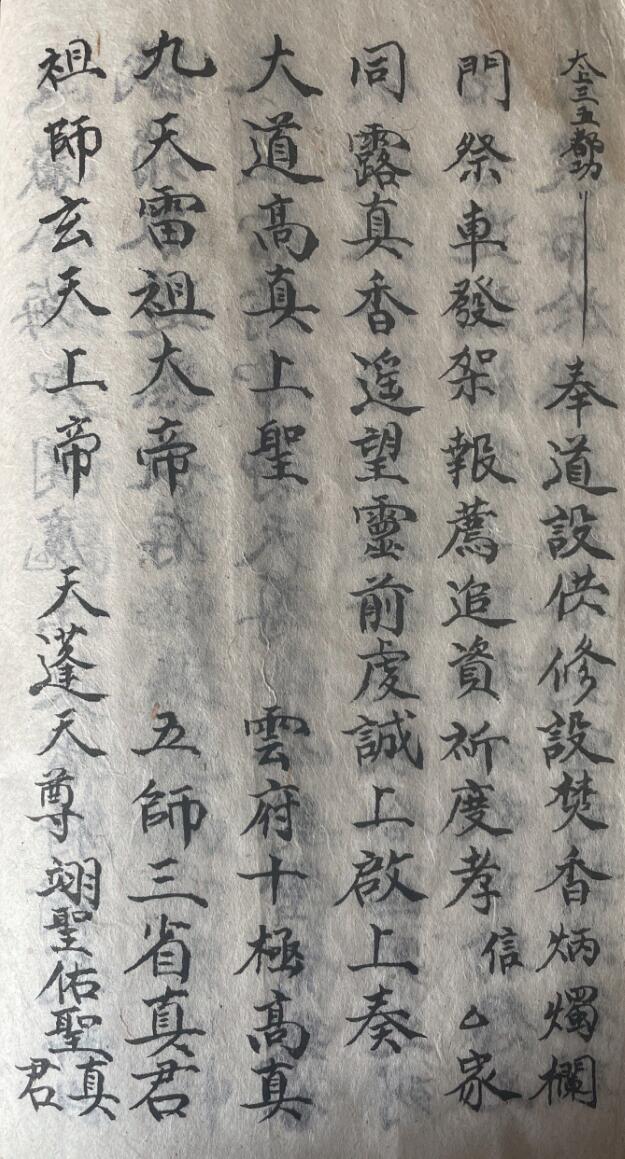 太上三五都功 奉道設供修設焚香炳燭欄
門祭車發架報薦追資祈度孝信△家
同露真香遥望靈前虔誠上啟上奏
大道高真上聖 雲府十極高真
九天雷祖大帝 五師三省真君
祖師玄天上帝 天蓬天尊 翊聖佑聖真君